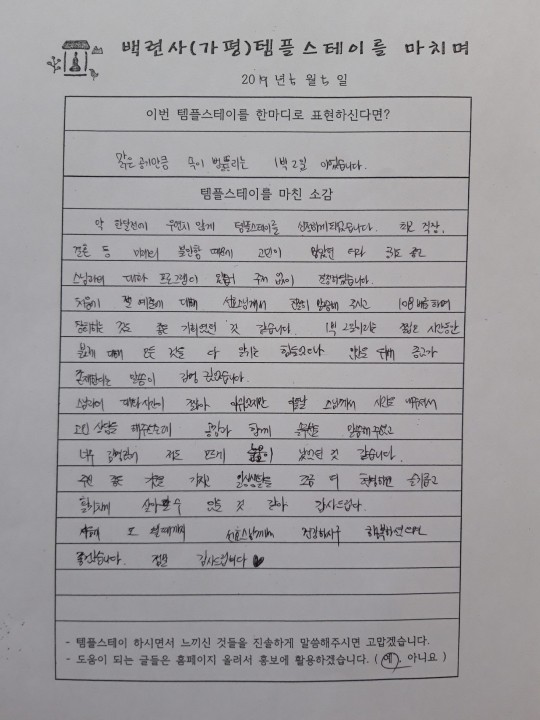 백련사(가평)템플스테이를 마치며
2019년 5 월 5 일
이번 템플스테이를 한마디로 표현하신다면?
맑은 공기만큼 목이 뻥뚫리는 1박2일 이었습니다.
템플스테이를 마친 소감
약 한달전에 우연치 않게 템플스테이를 신청하게되었습니다. 최근 직장,
결혼 등 미래의 불안함 때문에 고민이 많았던 터라
스님과의 대화 프로그램이 있길래 주저 없이 결정하였습니다.
처음에 절 예절에 대해 선효스님께서 말씀해 주시고 108배를 하며
것도 좋은 기억이었던 것 같습니다. 1박 2일이라는 짧은 시간동안
불교에 대해 모든 것을 다 알기는 힘들었으나 인간을 위해 종교가
존재한다는 말씀이 감명 깊었습니다.
스님과의 대화시간이 짧아 아쉬웠지만 다음날 스님께서 시간을 내주셔서
고민 상담을 해주셨는데 공감과 함께 말씀해주셨고
너무 감명깊어 저도 모르게 눈물이 났었던 것 같습니다.
주신 좋은 가지고 일상생활을 조금 더 현명하면 슬기롭고
살아갈 수 있을 것 같아 감사드립니다.
또 뵐때까지 선효스님께서 건강하시구 행복하셨으면
좋겠습니다. 정말 감사드립니다 ♥
- 템플스테이 하시면서 느끼신 것들을 진솔하게 말씀해주시면 고맙겠습니다.
- 도움이 되는 글들은 홈페이지 올려서 홍보에 활용하겠습니다. ( 예, 아니요 )